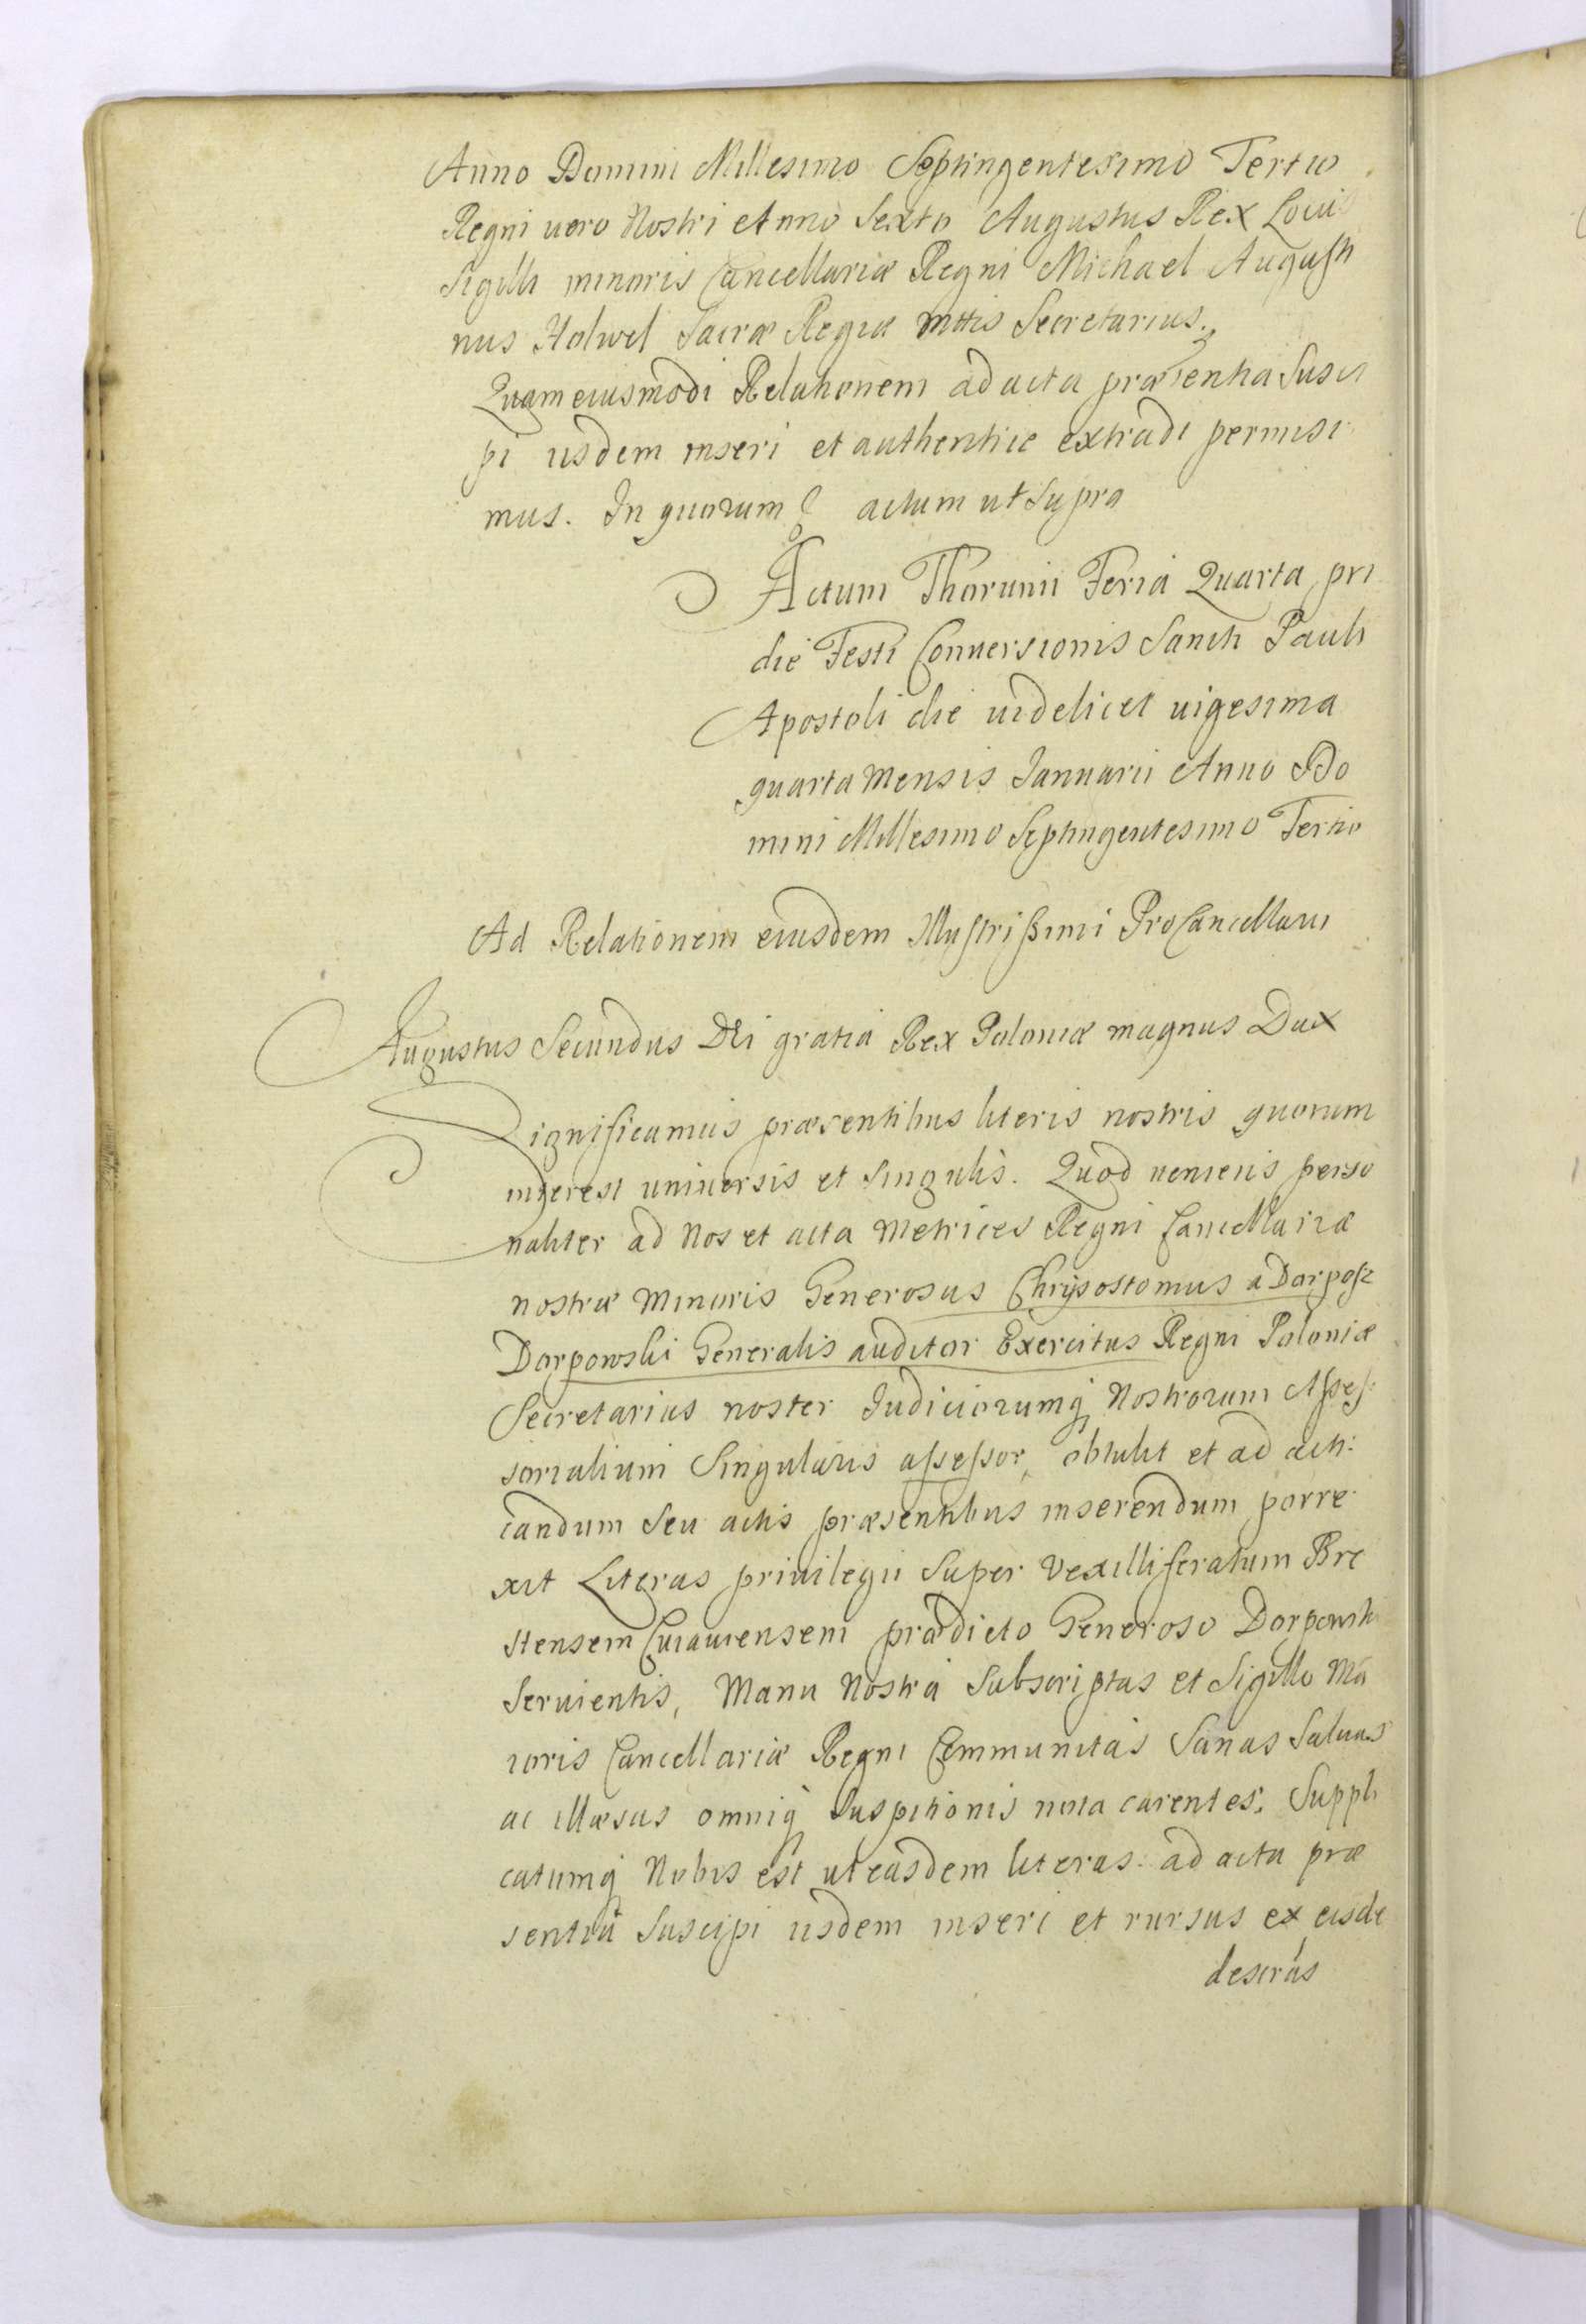 Anno Domini Millesimo Septingentesimo Tertio
Regni uero Nostri Anno Sexto Augustus Rex Locus
Sigilli minoris Cancellariæ Regni Michael Augusti
nus Holwel Sacræ Regiæ Mttis Secretarius.
Quam eiusmodi Relationem ad acta præsentia Susci
pi iisdem inseri et authentice extradi permisi
mus. In quorum actum ut Supra
Actum Thorunii Feria Quarta pri
die Festi Conuersionis Sancti Pauli
Apostoli die uidelicet uigesima
quarta Mensis Januarii Anno Do
mini Millesimo Septingentesimo Tertio
Ad Relationem eiusdem Illustrissimi ProCancellarii
Augustus Secundus Dei gratia Rex Poloniæ magnus Dux
Significamus præsentibus literis nostris quorum
interest uniuersis et singulis. Quod ueniens perso
naliter ad Nos et acta Metrices Regni Cancellariæ
nostræ Minoris Generosus Chrysostomus a Dorposz
Dorpowski Generalis auditor Exercitus Regni Poloniæ
Secretarius noster Judiciorumq Nostrorum Asses
sorialium Singularis assessor, obtulit et ad acti:
candum Seu actis præsentibus inserendum porre
xit Literas priuilegii Super Vexilliferatum Bre
stensem Cuiauiensem prædicto Generoso Dorpowski
Seruientis, Manu Nostra Subscriptas et Sigillo Ma
ioris Cancellariæ Regni Communitas Sanas Saluas
ac illæsas omniq Suspitionis nota carentes. Suppli
catumq Nobis est ut easdem literas ad acta præ
sentia Suscipi iisdem inseri et rursus ex eisde
descras